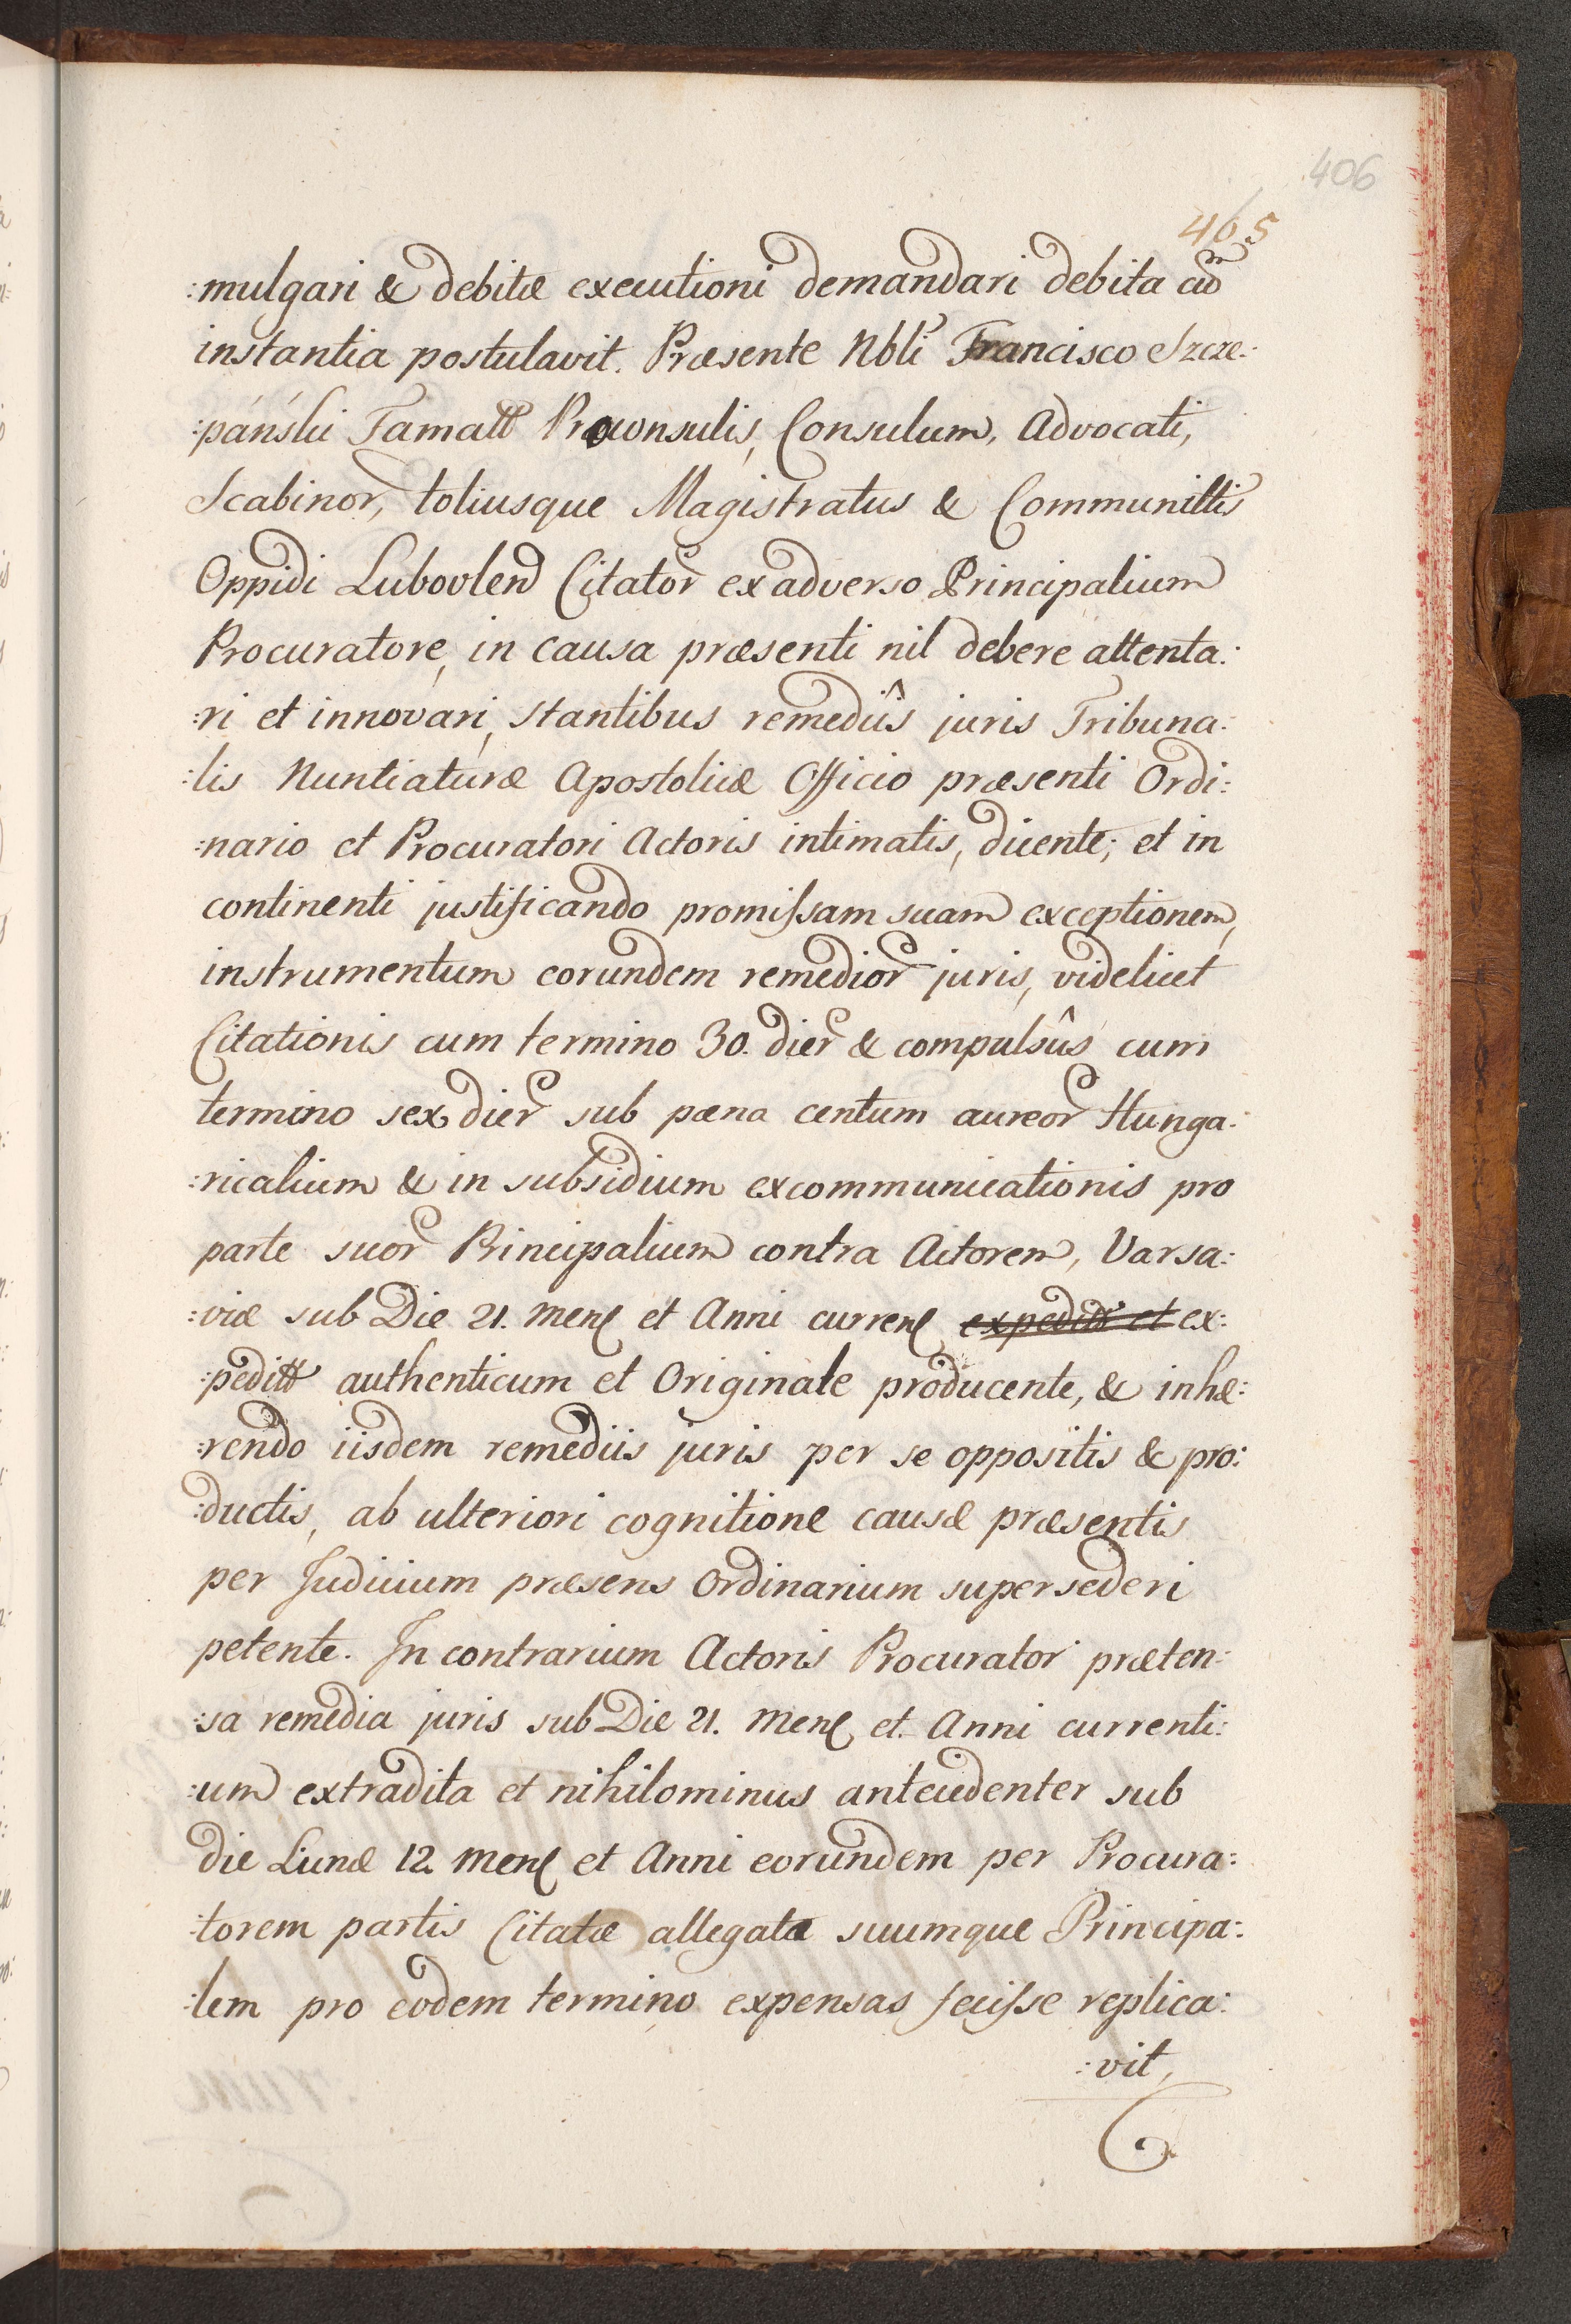 406
405
:mulgari & debitæ executioni demandari debita cũ
instantia postulavit. Præsente Nbli Francisco Szcze:
:pański Famatt Proconsulis, Consulum, Advocati,
Scabinor, totiusque Magistratus & Communittis
Oppidi Lubovlen Citator ex adverso Principalium
Procuratore, in causa præsenti nil debere attenta:
:ri et innovari, stantibus remediîs juris Tribuna:
:lis Nuntiaturæ Apostolicæ Officio præsenti Ordi:
:nario et Procuratori Actoris intimatis, dicente; et in
continenti justificando promissam suam exceptionem,
instrumentum eorundem remedior juris, videlicet
Citationis cum termino 30. dier & compulsûs cum
termino sex dier sub pœna centum aureor Hunga:
:ricalium & in subsidium excommunicationis pro
parte suor Principalium contra Actorem, Varsa:
:viæ sub Die 21. Mens et Anni curren expeditt et ex:
:peditt authenticum et Originale producente, & inhæ:
:rendo iisdem remediis juris per se oppositis & pro:
:ductis, ab ulteriori cognitione causæ præsentis
per Judicium præsens Ordinarium supersederi
petente. In contrarium Actoris Procurator præten:
:sa remedia juris sub Die 21. Mens et Anni currenti:
:um extradita et nihilominus antecedenter sub
die Lunæ 12. Mens et Anni eorundem per Procura:
:torem partis Citatæ allegata suumque Principa:
:lem pro eodem termino expensas fecisse replica:
:vit,